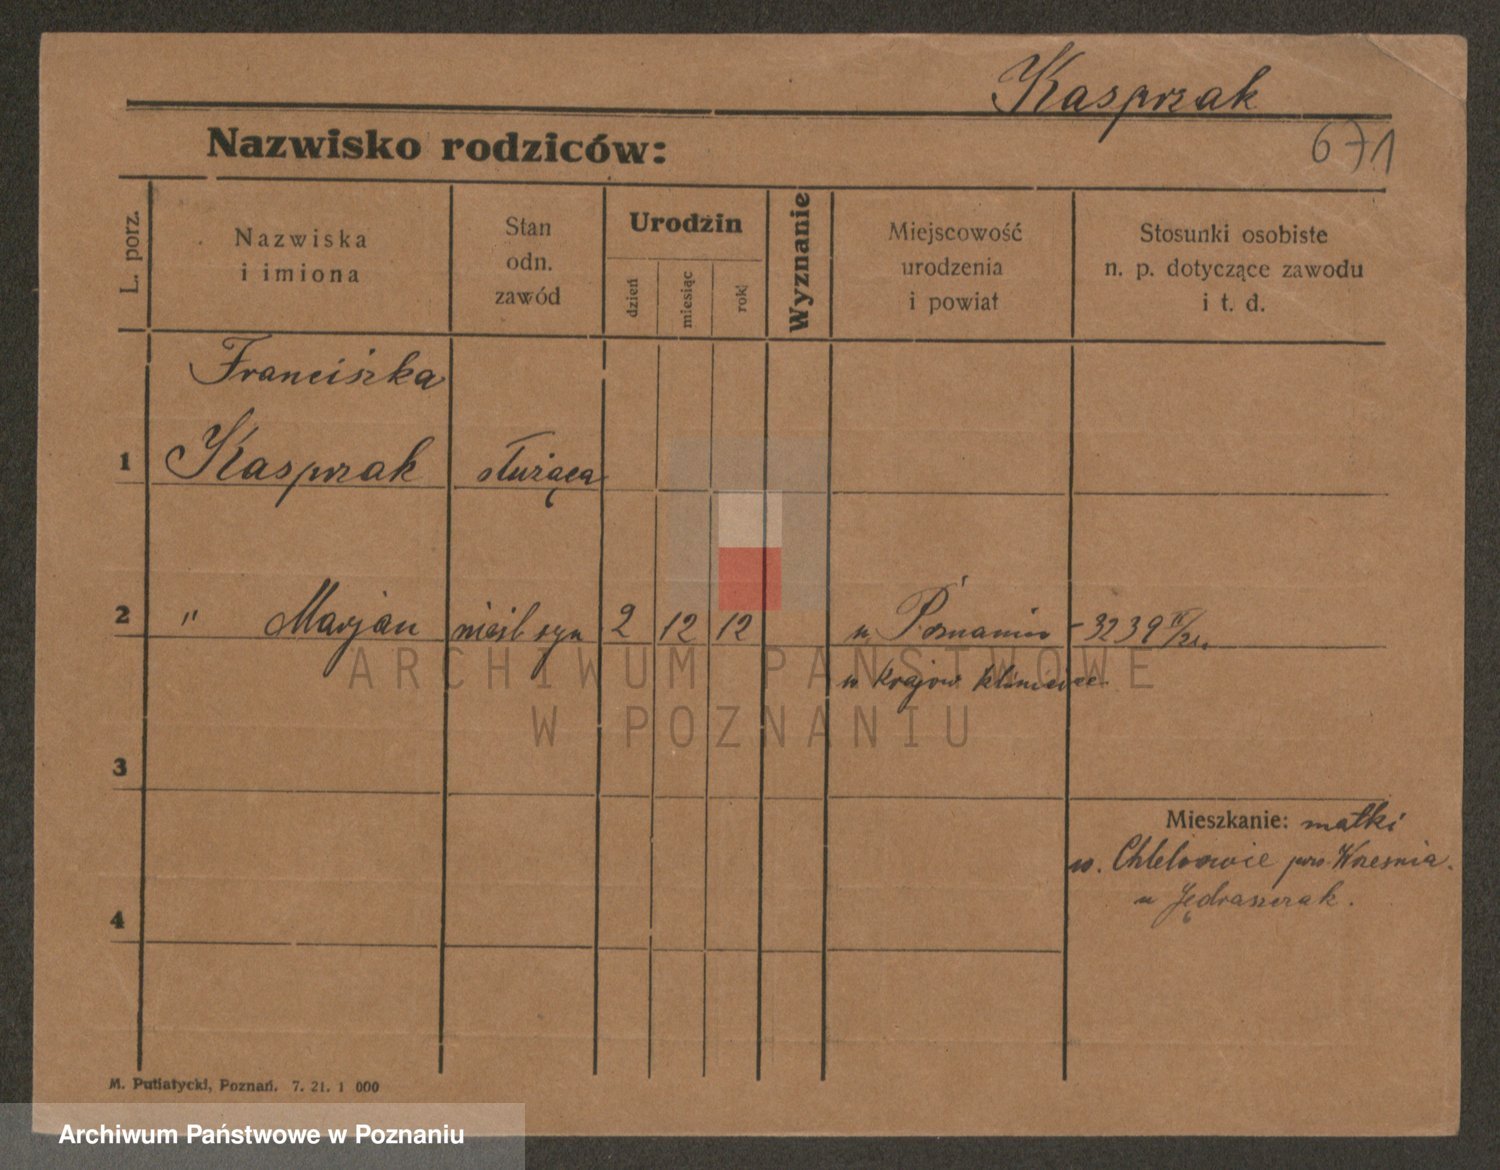 Kasprzak
Nazwisko rodziców:
671
L. porz.
Nazwiska
i imiona
Stan
odn.
zawód
Urodzin
dzień
miesiąc
rok
Wyznanie
Miejscowość
urodzenia
i powiat
Stosunki osobiste
n. p. dotyczące zawodu
i t. d.
Franciszka
1 Kasprzak służąca
2 " Marjan nieśl syn 2 12 12 w Poznaniu - 3239
w krajow klinice
3
Mieszkanie: matki
w. pow Wresnia.
u Jędraszczak.
4
M. Putiatycki, Poznań. 7. 21. 1 000
ARCHIWUM PAŃSTWOWE
W POZNANIU
Archiwum Państwowe w Poznaniu